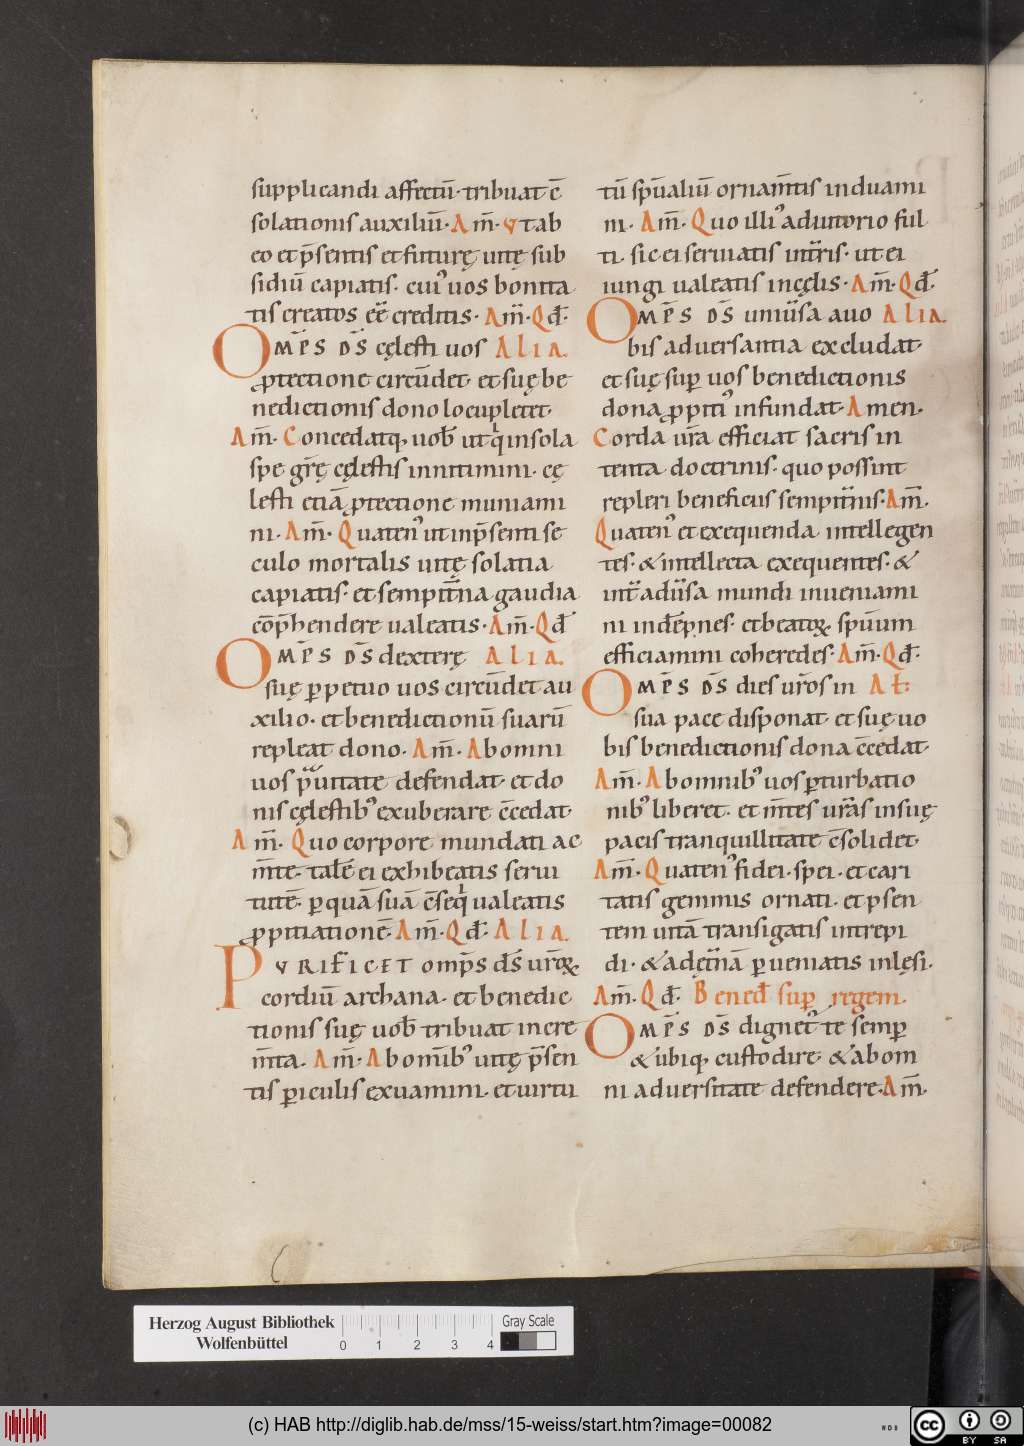 supplicandi affectū· tribuat c̄
solationis auxiliū· Am̄· Vt ab
eo et p̄sentis et futurę uitę sub
sidiū capiatis· cui᾽ uos bonita
tis creatos eē̄ creditis· Am̄· Qđ·
Om̄p̄s d̄s cęlesti uos Alia.
ꝓtectione circūdet· et suę be
nedictionis dono locupletet·
Am̄· Concedatq; uob̄ ut qͥ in sola
spe gr̄ę cęlestis innitimini· cę
lesti etiā ꝓtectione muniami
ni· Am̄· Quaten᾽ ut in p̄senti se
culo mortalis uitę solatia
capiatis· et sempit̄na gaudia
cōp̄hendere ualeatis· Am̄· Qđ
Om̄p̄s d̄s dexterę Alia.
suę ꝑpetuo uos circūdet au
xilio· et benedictionū suarū
repleat dono· Am̄· Ab omni
uos p̄uitate defendat· et do
nis cęlestib᾽ exuberare c̄cedat·
Am̄· Quo corpore mundati ac
m̄te· talē ei exhibeatis serui
tutē· ꝑ quā suā c̄seqͥ ualeatis
ꝓpitiationē· Am̄· Qđ· Alia.
Purificet omp̄s d̄s ur̄oꝝ
cordiū archana· et benedic
tionis suę uob̄ tribuat incre
m̄ta· Am̄· Ab om̄ib᾽ uitę p̄sen
tis ꝑiculis exuamini· et uirtu
tū sp̄ualiū ornam̄tis induami
ni· Am̄· Quo illi᾽ adiutorio ful
ti· sic ei seruiatis in t̄ris· ut ei
iungi ualeatis in cęlis· Am̄· Qđ·
Om̄p̄s d̄s uniūsa a uo Alia.
bis aduersantia excludat·
et suę suꝑ uos benedictionis
dona ꝓpiti᾽ infundat· Amen·
Corda ur̄a efficiat sacris in
tenta doctrinis· quo possint
repleri beneficiis sempit̄nis· Am̄·
Quaten᾽ et exequenda intellegen
tes· & intellecta exequentes· &
int̄ adūsa mundi inueniami
ni indēpnes· et beatoꝝ sp̄uum
efficiamini coheredes· Am̄· Qđ·
Om̄p̄s d̄s dies ur̄os in Ał:
sua pace disponat· et suę uo
bis benedictionis dona c̄cedat·
Am̄· Ab omnib᾽ uos ꝑturbatio
nib᾽ liberet· et m̄tes ur̄as in suę
pacis tranquillitate c̄solidet·
Am̄· Quaten᾽ fidei· spei· et cari
tatis gemmis ornati· et psen
tem uitā transigatis intrepi
di· & ad ęt̄nā ꝑueniatis inlęsi·
Am̄· Qđ· Bened̄ suꝑ regem·
Om̄p̄s d̄s dignet᾽ te semꝑ
& ubiq; custodire· & ab om
ni aduersitate defendere· Am̄·
Herzog August Bibliothek
Wolfenbüttel
0 1 2 3 4
Gray Scale
(c) HAB http://diglib.hab.de/mss/15-weiss/start.htm?image=00082
cc BY SA